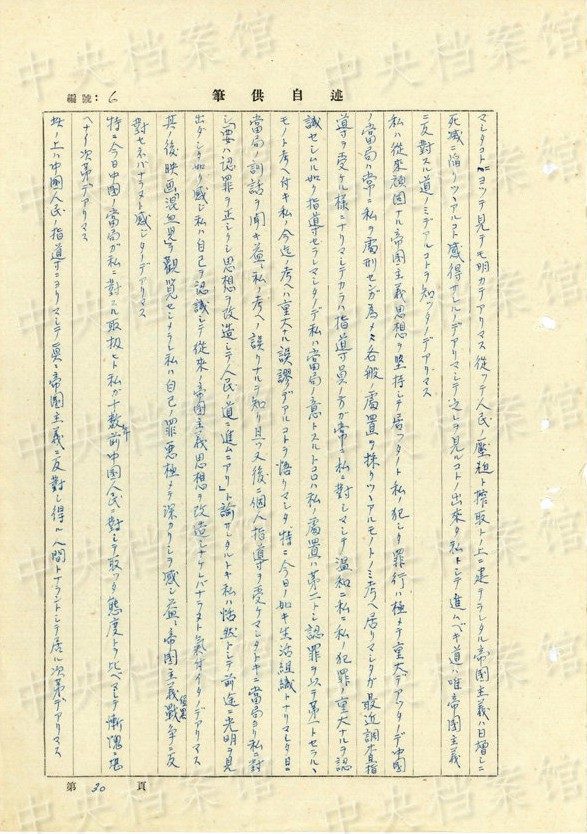 編號：6
筆供自述
マシタコトニヨツテ見テモ明カデアリマス従ツテ人民ノ壓迫ト搾取トノ上ニ建テラレタル帝國主義ハ日増シニ
死滅ニ陥リツヽアルコトヲ感得サレルノデアリマシテ之レヲ見ルコトノ出來タ私トシテ進ムベキ道ハ唯帝國主義
ニ反對スル道ノミデアルコトヲ知ツタノデアリマス
私ハ従來頑固ナル帝國主義思想ヲ堅持シテ居ツタノト私ノ犯シタ罪行ハ極メテ重大デアツタノデ中國
ノ當局ハ常ニ私ヲ處刑センガ為メニ各般ノ處置ヲ採リツヽアルモノトノミ考ヘ居リマシタガ最近調査指
導ヲ受ケル様ニナリマシテカラハ指導員ノ方ガ常ニ私ニ對シマシテ溫和ニ私ニ私ノ犯罪ノ重大ナルヲ認
識セシムル如ク指導セラレマシタノデ私ハ當局ノ意トスルトコロハ私ノ處置ハ第二トシ認罪ヲ以テ第一トセラルヽ
モノト考ヘ付キ私ノ今迄ノ考ヘハ重大ナル誤謬デアルコトヲ悟リマシタ特ニ今日ノ如キ生活組織トナリマシタ日ニ
當局ノ訓話ヲ聞キ益々私ノ考ヘノ誤リナルヲ知リ且ツ又後ニ個人指導ヲ受ケマシタトキニ當局ヨリ私ニ對
シ「要ハ認罪ヲ正シクシ思想ヲ改造シテ人民ノ道ニ進ムニアリ」ト諭サレタルトキ私ハ恍然トシテ前途ニ光明ヲ見
出シタル如ク感ジ私ハ自己ヲ認識シテ従來ノ帝國主義思想ヲ改造シナケレバナラヌト氣付イタノデアリマス
其ノ後映画「混血児」ヲ觀覧セシメラレ私ハ自己ノ罪悪極メテ深カリシヲ感ジ益々帝國主義戰爭ニ反
對セネバナラヌト感ジタノデアリマス
特ニ今日中國ノ當局ガ私ニ對スル取扱ヒト私ガ十数年前中國人民ニ對シテ取ツタ態度トヲ比ベマシテ慚愧ニ堪
ヘナイ次第デアリマス
此ノ上ハ中國人民ノ指導ニヨリマシテ眞ニ帝國主義ニ反對シ得ル人間トナラントシテ居ル次第デアリマス
第 20 頁
中央档案馆